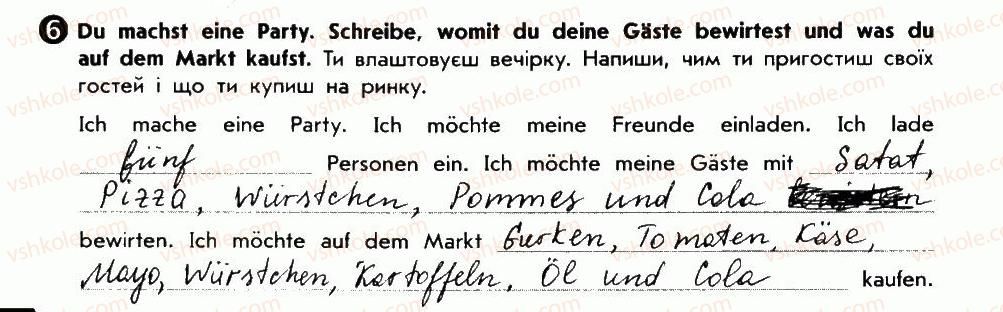 6 Du machst eine Party. Schreibe, womit du deine Gäste bewirtest und was du
auf dem Markt kaufst. Ти влаштовуєш вечірку. Напиши, чим ти пригостиш своїх
гостей і що ти купиш на ринку.
Ich mache eine Party. Ich möchte meine Freunde einladen. Ich lade
fünf Personen ein. Ich möchte meine Gäste mit Satat,
Pizza, Würstchen, Pommes und Cola
bewirten. Ich möchte auf dem Markt Gurken, Tomaten, Käse,
Mayo, Würstchen, Kartoffeln, Öl und Cola kaufen.